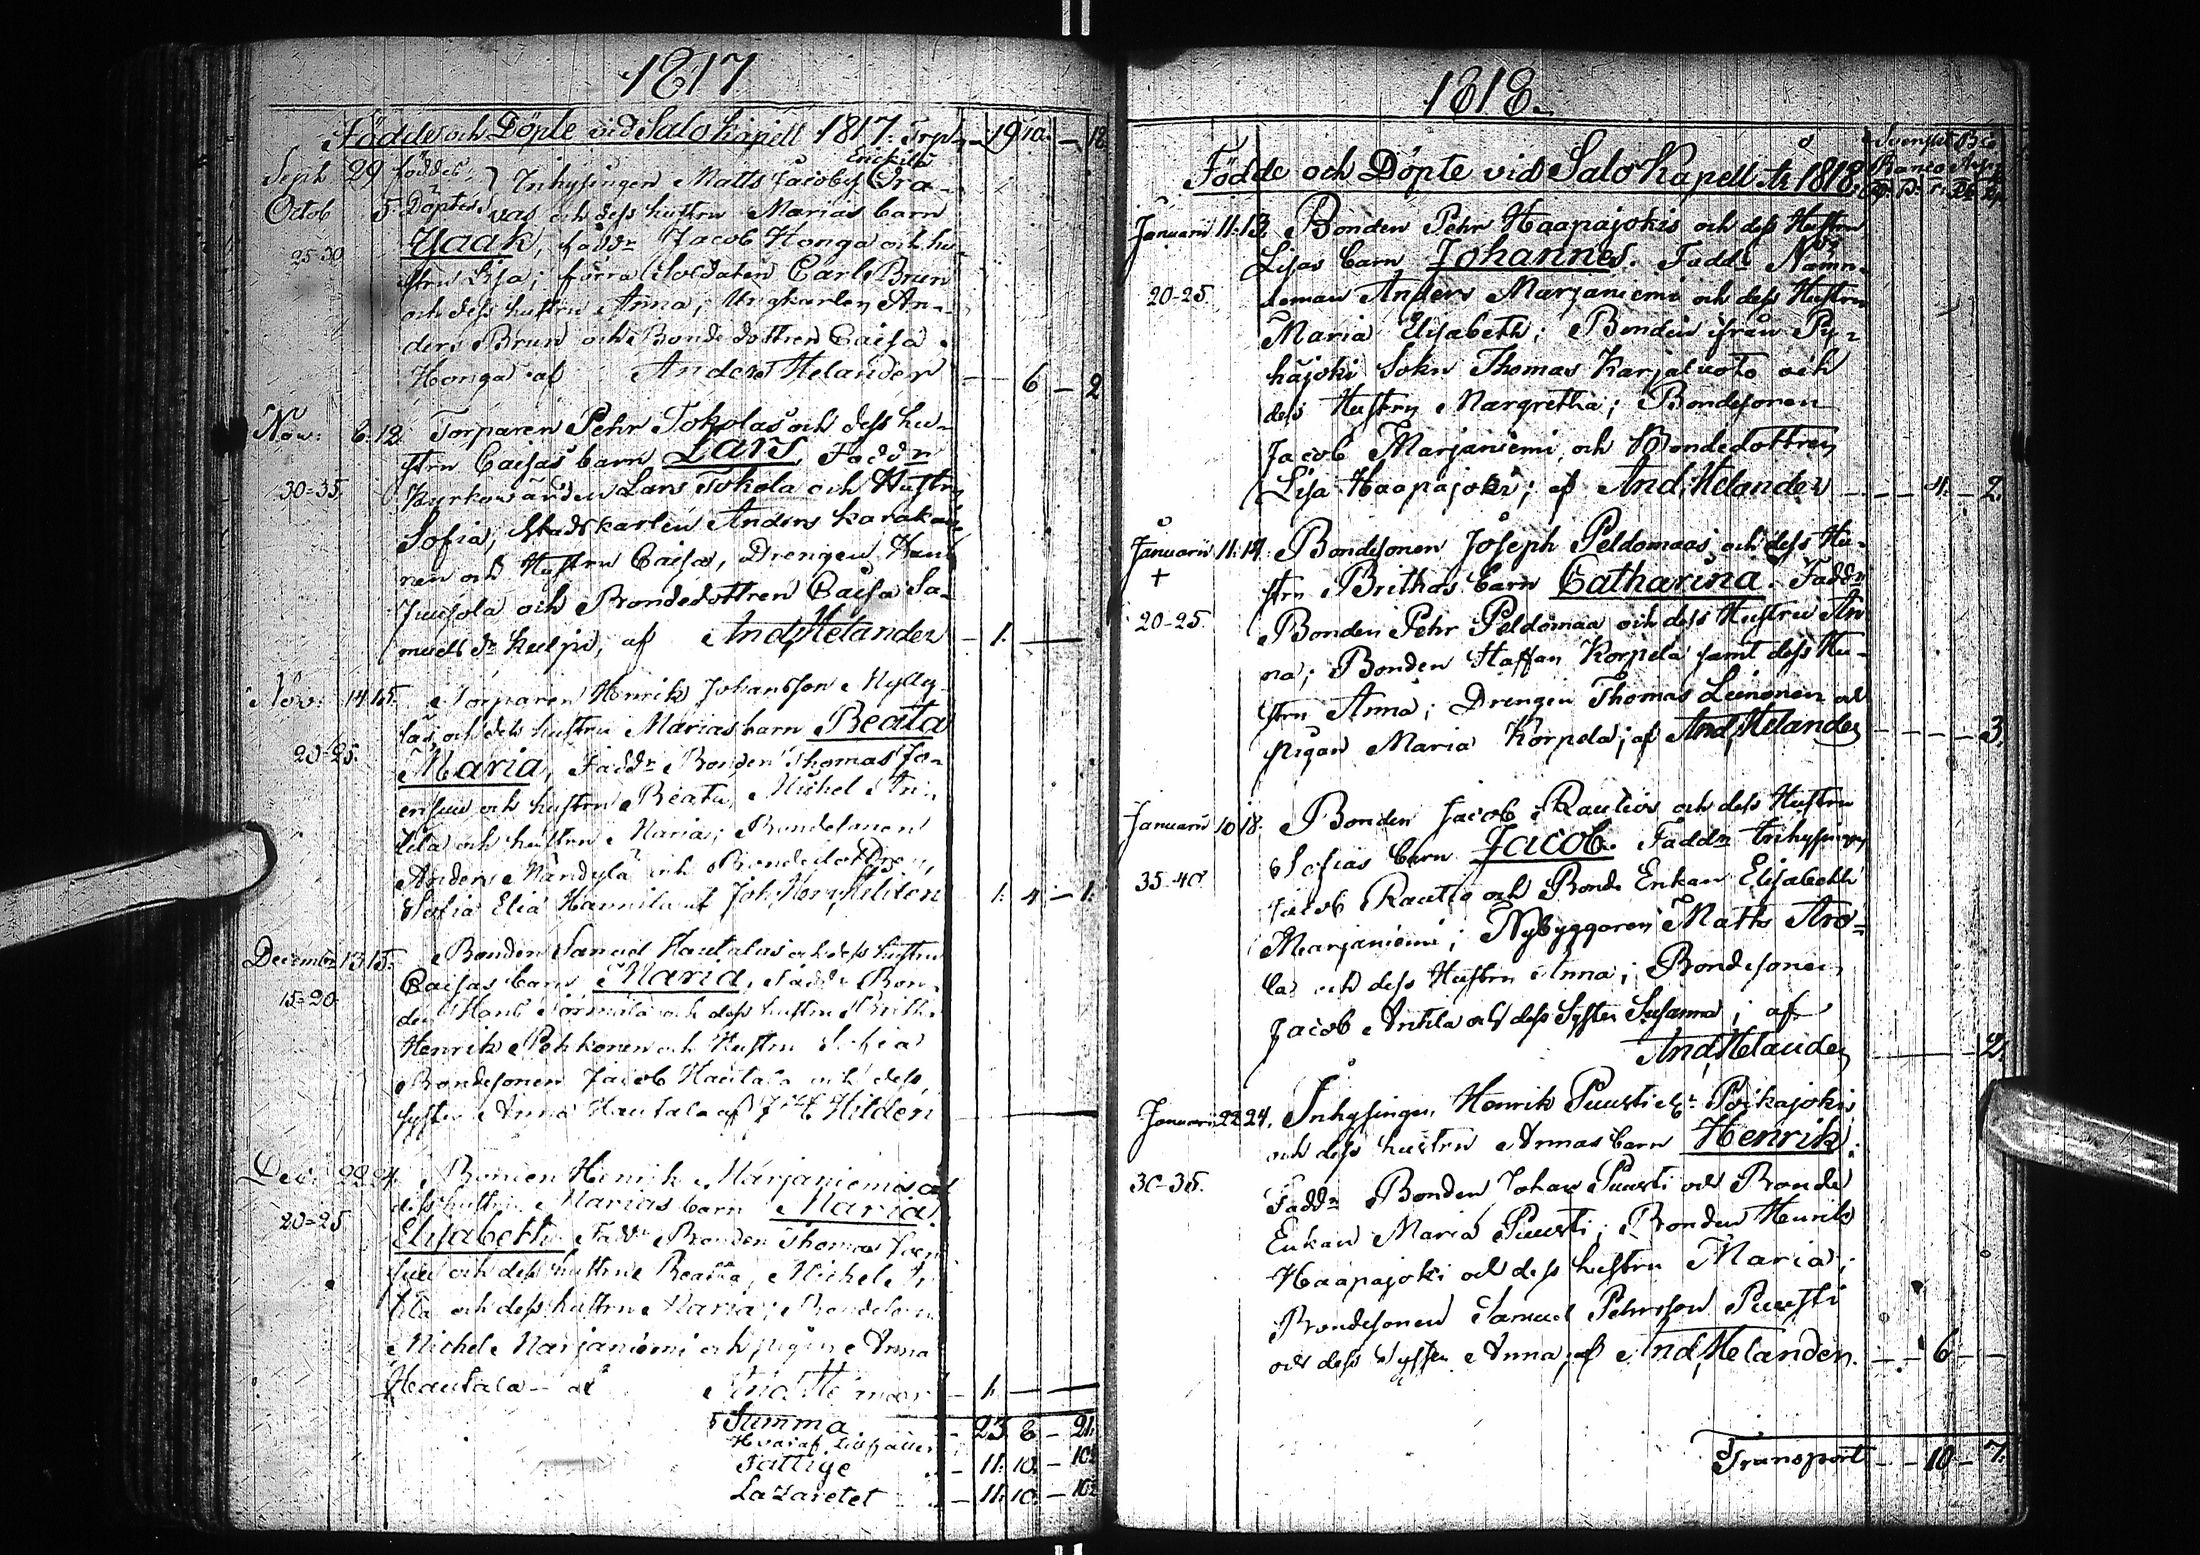 1817
Födde och Döpte vid Salo Kapell 1817. Trpt — 19 10. — 18
Ericks
Sept 29 föddes, Inhysingen Matts Jacobs Ora-
Octob 5 Döptes vas och dess hustru Marias barn
25-30 Isaak, fadd:r Jacob Honga och hu-
stru Lisa; förra Soldaten Carl Brun
och dess hustru Anna; Ungkarlen An-
ders Brun och Bondedottren Caisa
Honga af Anders Helander — 6 — 2
Nov: 6. 12. Torparen Pehr Tokolas och dess hu-
stru Caisas barn Lars, Fadd:r
30-35. Kyrkowärden Lars Tokola och Hustru
Sofia, Stadskarlen Anders
nen och Hustru Caisa, Drengen
Juusola och Bondedottren Caisa Sa-
muels d:r af And, Helander — 1. —
Nov: 14. 15. Torparen Henrik Johansson
läs och dess hustru Marias barn Beata
20-25. Maria, Fadd:r Bonden Thomas Jo-
ensuu och hustru Beata, Michel An-
tila och hustru Maria; Bondesonen
Anders och Bondedottren
Sofia Elia Hannila af Joh, Henr, Hilden 1. 4 — 1.
December 13. 15. Bonden Samuel Hautalas och dess hustru
15-20 Caisas barn Maria, Fadd:r Bon-
den och dess hustru
Henrik Pehkonen och Hustru Sofia
Bondesonen Jacob Hautala och dess
syster Anna Hautala af J. H. Hilden
Dec: 22 24. Bonden Henrik Marjaniemis och
dess hustru Marias barn Maria
20-25 Elisabeth. Fadd:r Bonden Thomas Joen-
suu och dess hustru Beata, Michel An-
tila och dess hustru Maria; Bondesonen
Michel Marjaniemi och pigan Anna
Hautala — af — 1. —
Summa — 23 8 — 21.
Hvaraf tillfaller
Fattige — 11. 10. — 10½
Lazaretet — 11. 10. — 10½
1818.
Svenskt
Banco
Födde och Döpte vid Salo Kapell År 1818.
Januarii 11. 13. Bonden Pehr Haapajokis och dess Hustru
Lisas barn Johannes. Fadd:r Nämn-
20-25. deman Anders Marjaniemi och dess Hustru
Maria Elisabeth; Bonden ifrån Py-
häjoki Sokn Thomas Karjaluoto och
dess Hustru Margretha; Bondesonen
Jacob Marjaniemi, och Bondedottren
Lisa Haapajoki; af And, Helander — — 4. — 2.
Januarii 11. 14. Bondesonen Joseph Peldomaas och dess Hu-
+ stru Brithas barn Catharina. Fadd:r
20-25. Bonden Pehr Peldomaa och dess Hustru An
na; Bonden Staffan Korpela samt dess Hu-
stru Anna; Drengen Thomas Leinonen och
pigan Maria Korpela; af And, Helander — — — 3.
Januarii 10 18. Bonden Jacob Rautios och dess Hustru
Sofias barn Jacob. Fadd:r Inhysingen
35-40 Jacob Rautio och Bonde Enkan Elisabeth
Marjaniemi; Nybyggaren Matts Aro-
la och dess Hustru Anna; Bondesonen
Jacob Antila och dess Syster Susanna; af
And, Helander — 2.
Januarii 22 24. Inhysingen Henrik Puusti el:r Poikajokis
och dess hustru Annas barn Henrik.
30-35. Fadd:r Bonden Johan Puusti och Bonde
Enkan Maria Puusti; Bonden Henrik
Haapajoki och dess hustru Maria;
Bondesonen Samuel Pehrsson Puusti
och dess Syster Anna, af And, Helander. — — 6 —
Transport — — 10 — 7.